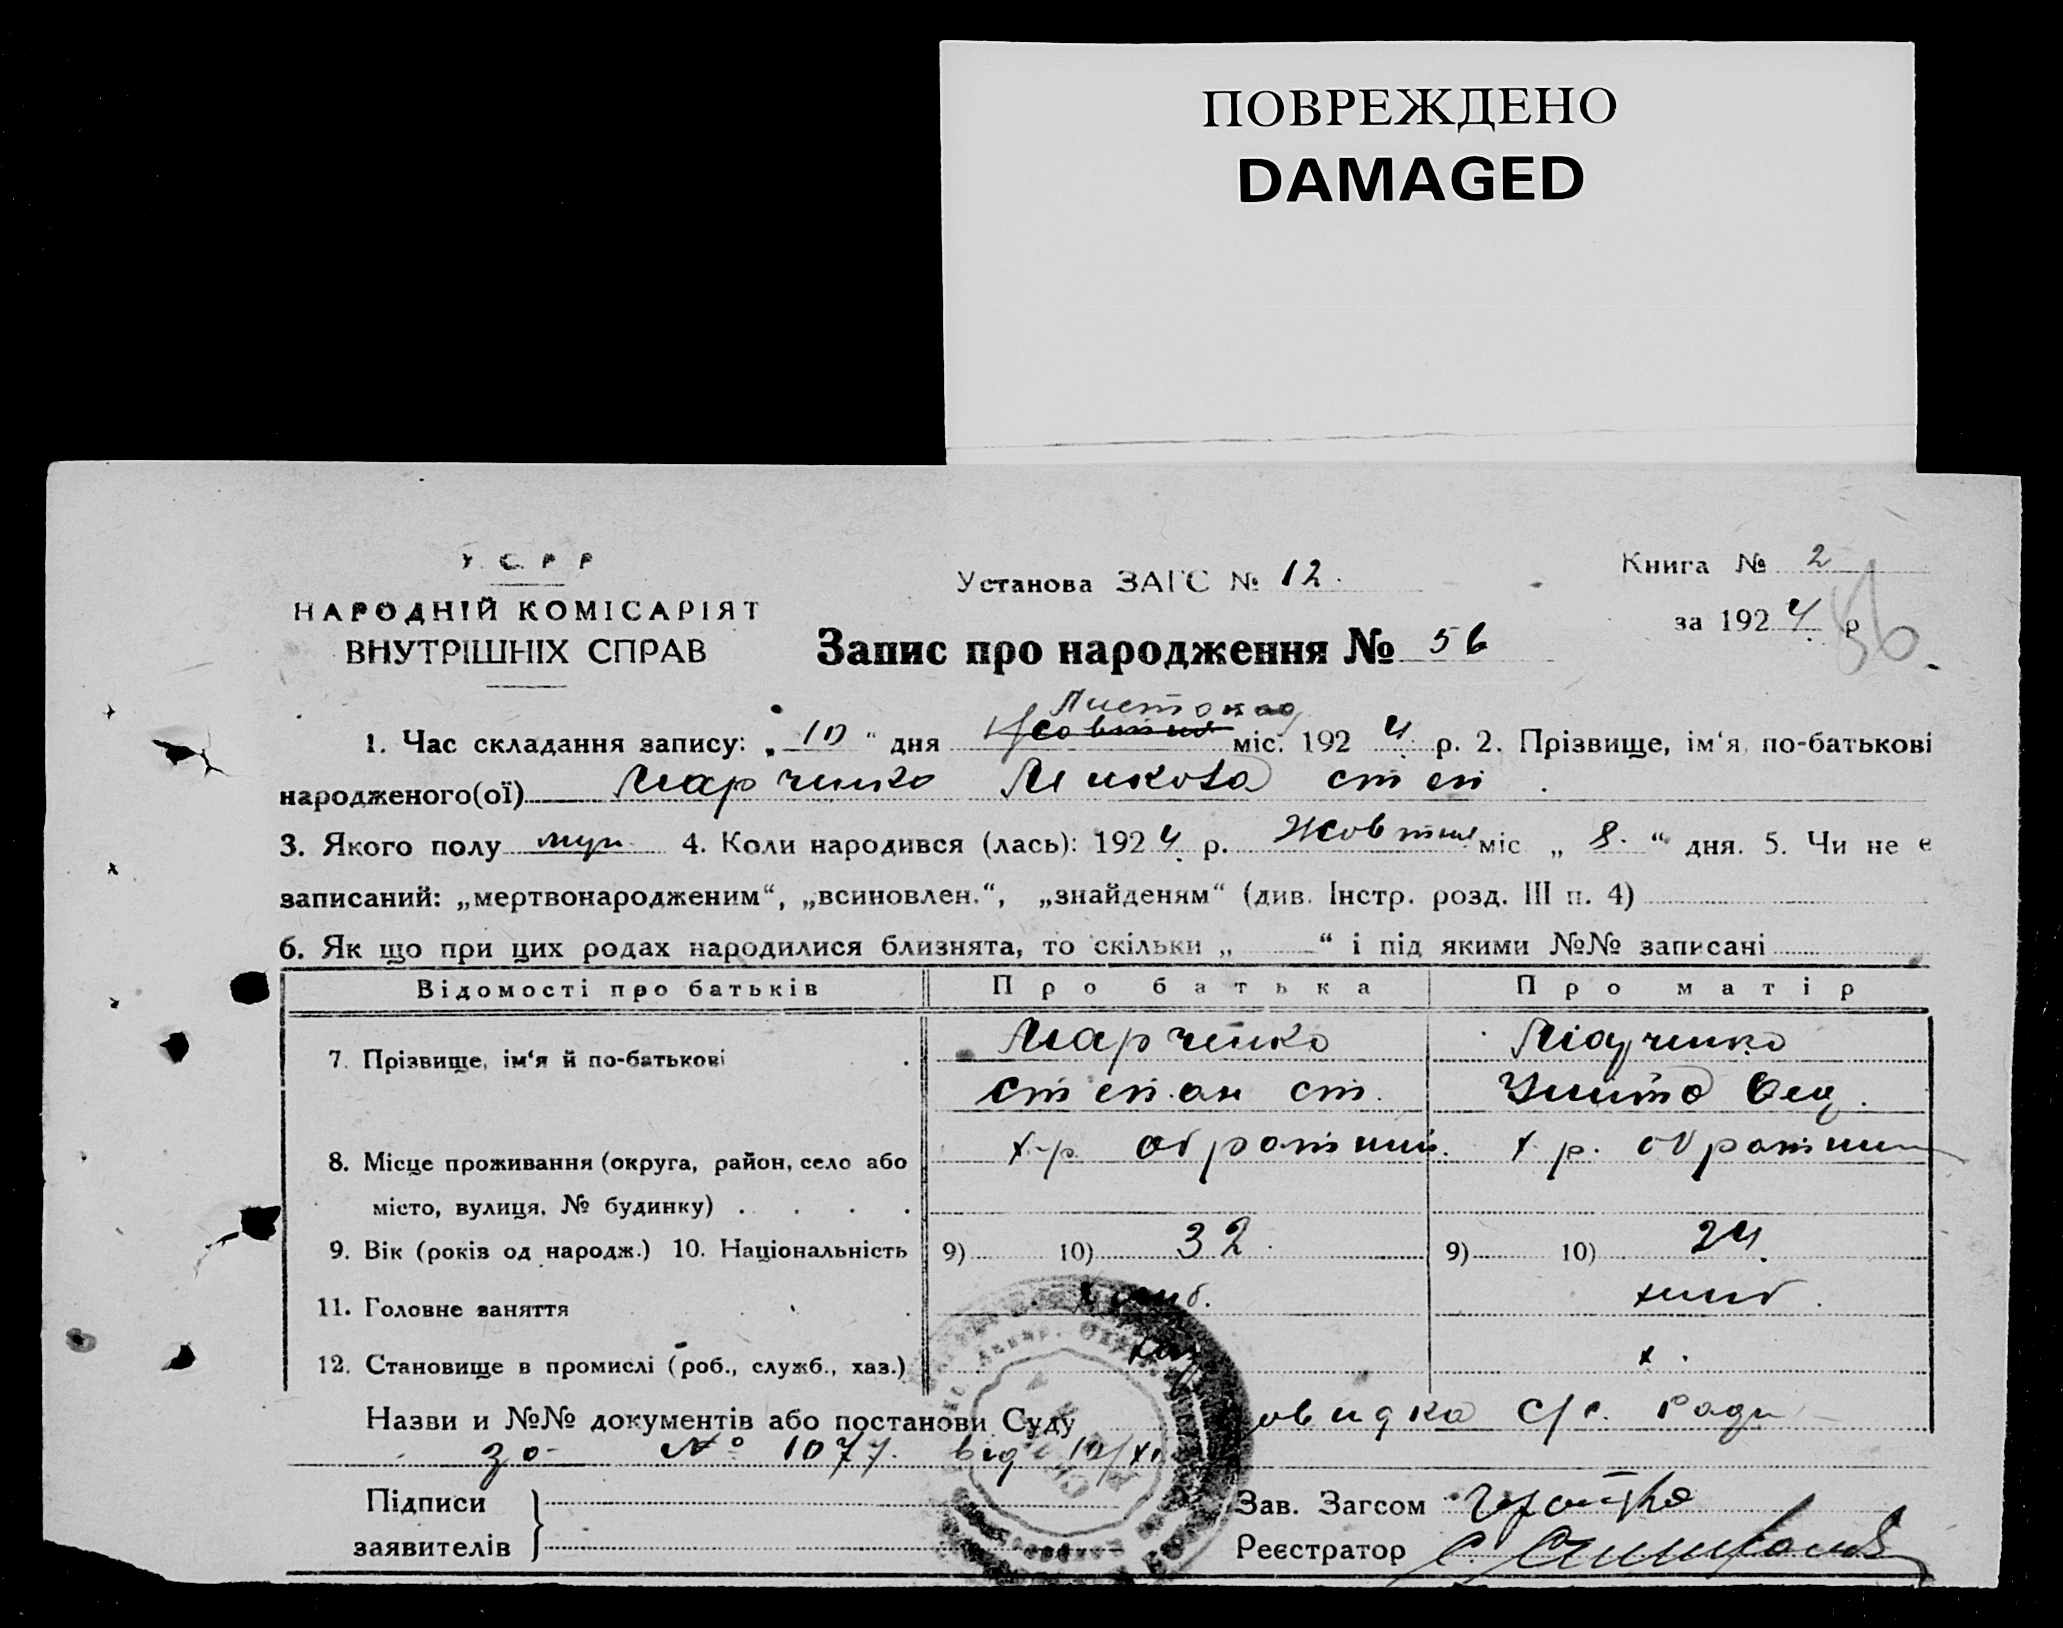 ПОВРЕЖДЕНО
DAMAGED
У. С. Р. Р.
НАРОДНІЙ КОМІСАРІЯТ
ВНУТРІШНІХ СПРАВ
Установа ЗАГС № 12.
Книга № 2
за 1924 р
56
Запис про народження № 56
Листопад
1. Час складання запису: „10“ дня Жовтня міс. 1924 р. 2. Прізвище, ім‘я, по-батькові
народженого(ої) Марченко Микола степ.
3. Якого полу муж. 4. Коли народився (лась): 1924 р. Жовтня міс „8.“ дня. 5. Чи не є
записаний: „мертвонародженим“, „всиновлен.“, „знайденям“ (див. Інстр. розд. III п. 4)
6. Як що при цих родах народилися близнята, то скільки „ “ і під якими №№ записані
Відомості про батьків Про батька Про матір
7. Прізвище, ім‘я й по-батькові Марченко Марченко
степан ст.
8. Місце проживання (округа, район, село або х-р. х. р.
місто, вулиця, № будинку)
9. Вік (років од народж.) 10. Національність 9) 10) 32. 9) 10) 24.
11. Головне заняття хліб. хліб.
12. Становище в промислі (роб., служб., хаз.) хаз х.
Назви и №№ документів або постанови Суду довидка С/с. Ради
за № 1077. від 10/XI
Підписи
заявителів
Зав. Загсом
Реєстратор